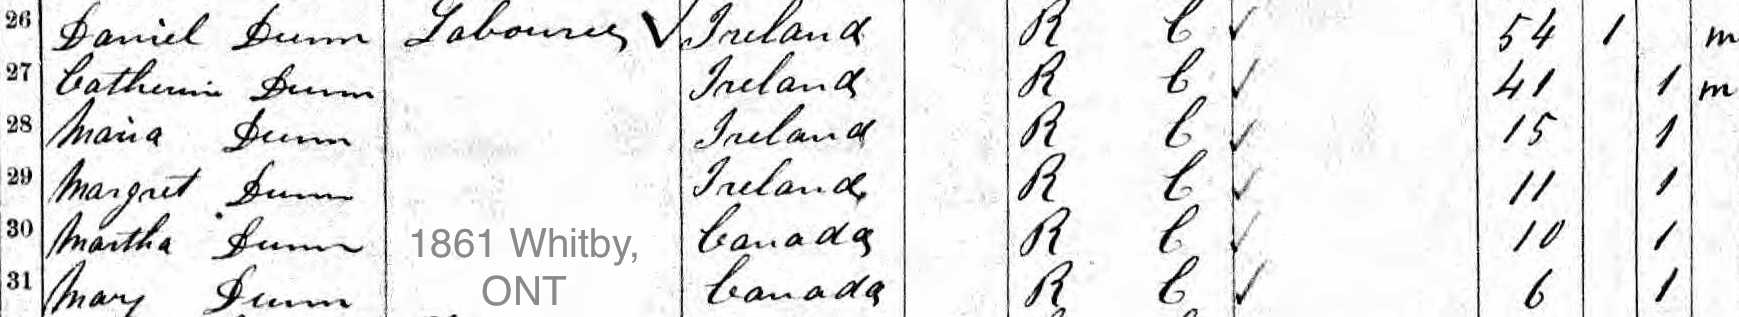 26 Daniel Dunn Labourer ✓ Ireland R C ✓ 54 1 m
27 Catherine Dunn Ireland R C ✓ 41 1 m
28 Maria Dunn Ireland R C ✓ 15 1
29 Margret Dunn Ireland R C ✓ 11 1
30 Martha Dunn Canada R C ✓ 10 1
31 Mary Dunn Canada R C ✓ 6 1
1861 Whitby,
ONT